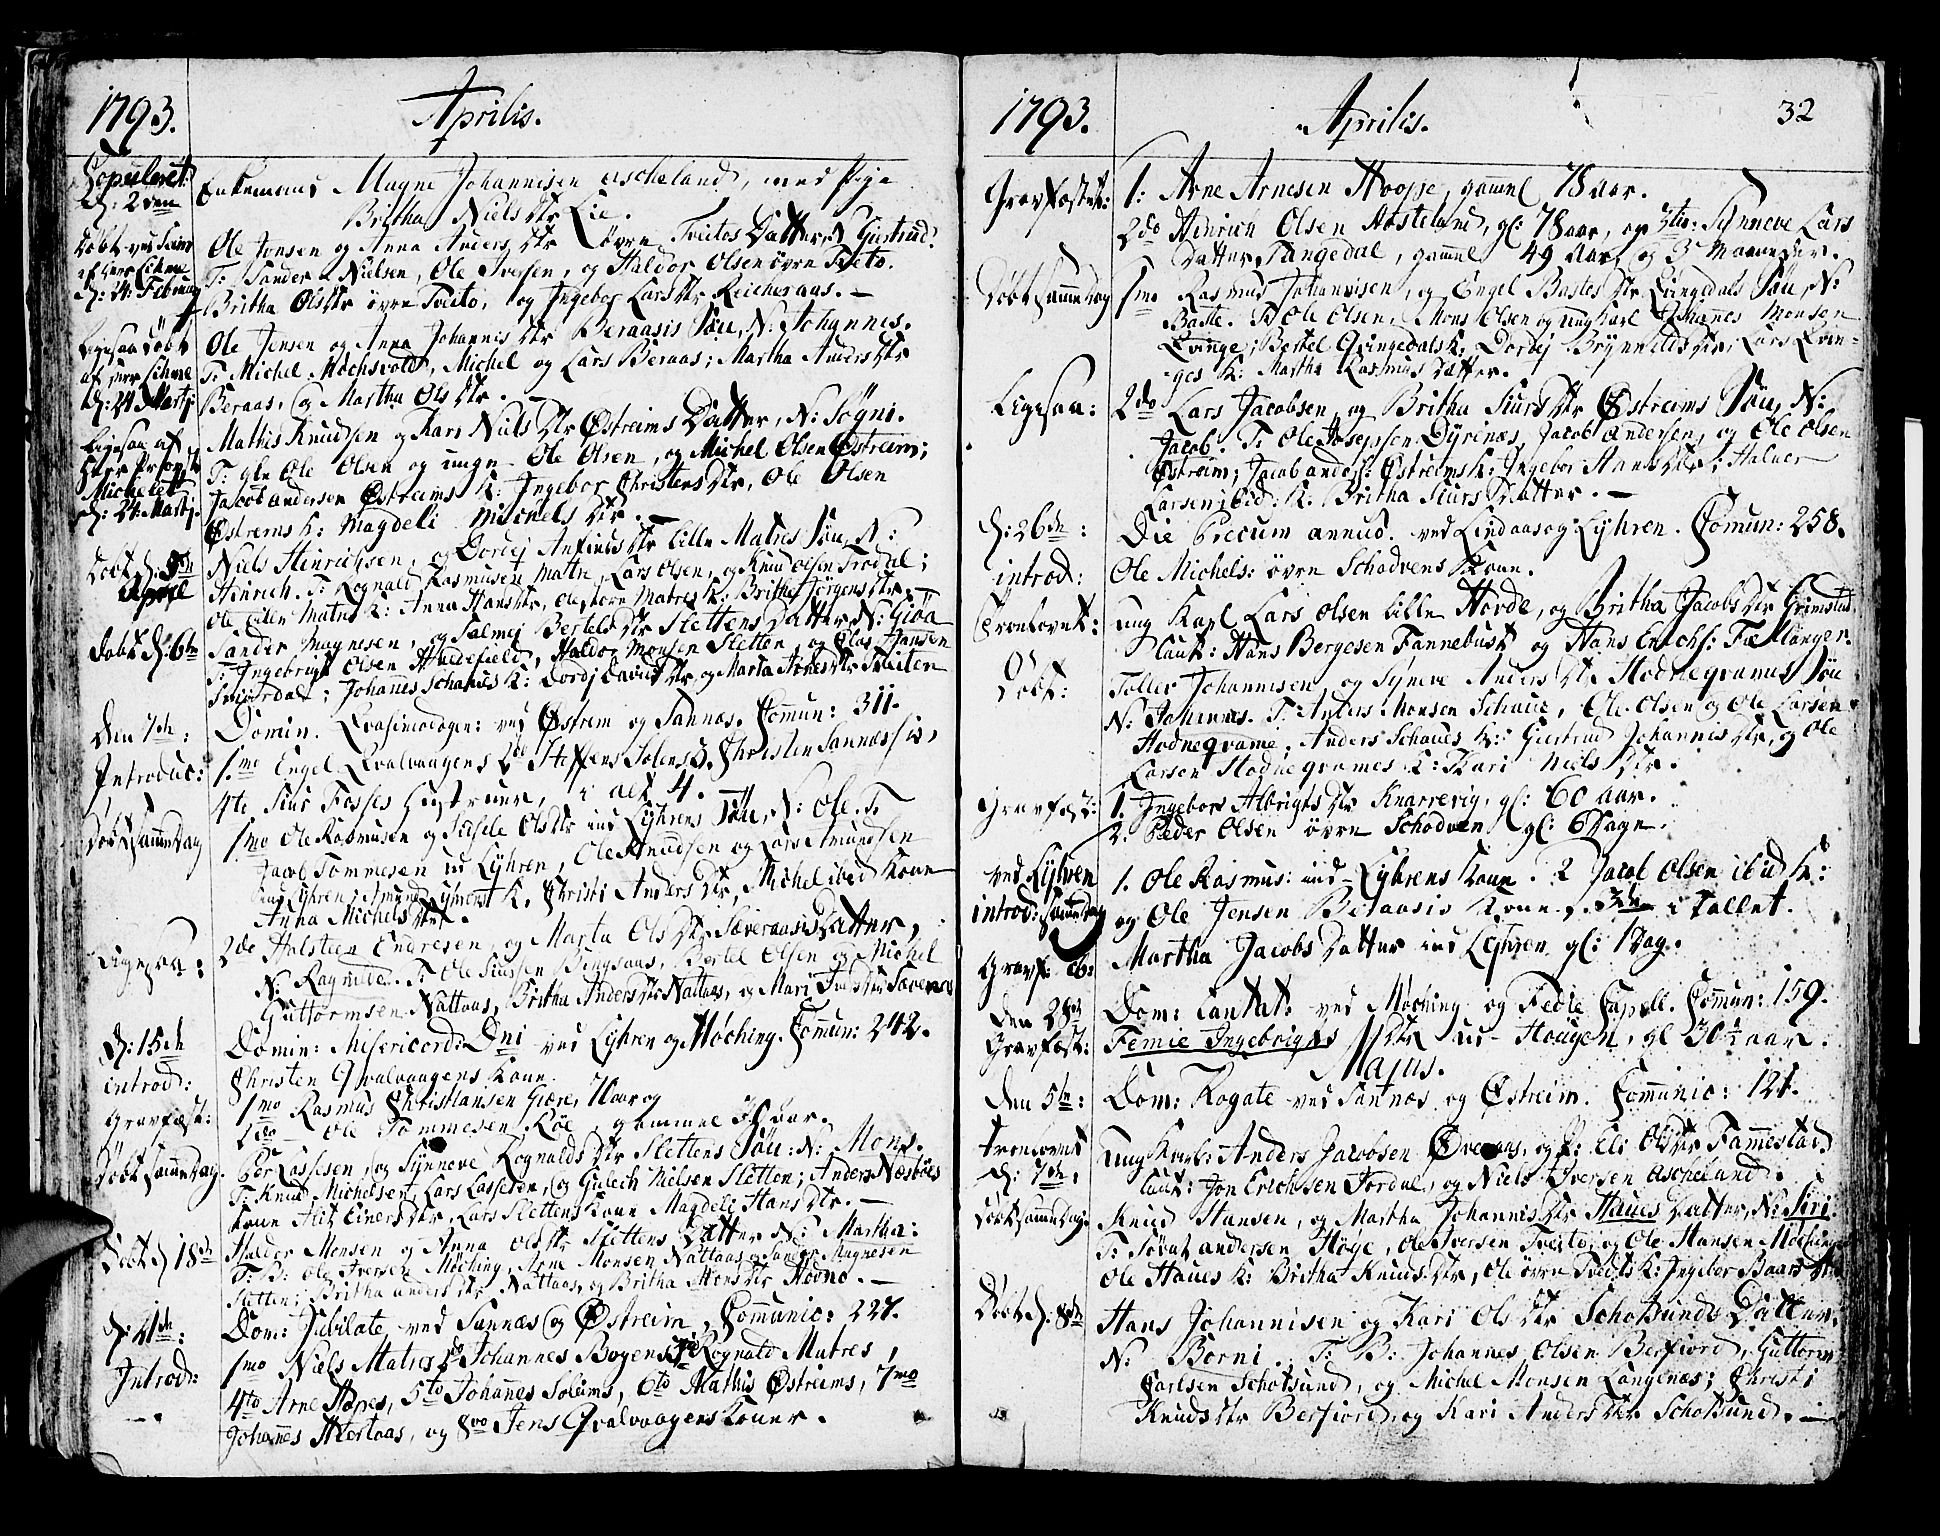 1793.
Aprilis.
Copuleret
d: 2den
Enkemand Magne Johannesen Ascheland, med Pige
Britha Niels Dtr Lie.
Døbt ved Seim
af Herr Lihme
d: 24: Februar
Ole Jonsen og Anna Anders Dtr øvre Tveitos Datter, N: Giertrud.
T: Sander Nielsen, Ole Iversen, og Haldor Olsen øvre Tveito.
Britha Ols Dtr øvre Tveito, og Ingebor Lars Dtr Reicheraas.
Ligesaa døbt
af Herr Lihme
d: 24 Martj:
Ole Jensen og Anna Johannis Dtr Beraasis Søn, N: Johannes.
T: Michel Mochsvold, Michel og Lars Beraas; Martha Anders Dtr
Beraas, og Martha Ols Dtr.
Ligesaa af
Herr Provst
Michelet
d: 24: Martj.
Mathis Knudsen og Kari Niels Dtr Østreims Datter, N: Sögni.
T: gln Ole Olsen og unge Ole Olsen, og Michel Olsen Østreim;
Jacob Andersen Østreims K: Ingebor Christens Dtr, Ole Olsen
Østreims K: Magdeli Michels Dtr.
Døbt d: 5te
April
Niels Hinrichsen, og Dordej Anfinds Dtr lille Matres Søn, N:
Hinrich. T: Rognald Rasmusen Matre, Lars Olsen, og Knud Olsen Frodal;
Ole lille Matres K: Anna Hans Dtr, Ole store Matres K: Britha Jörgens Dtr.
Døbt d: 6te
Sander Magnesen, og Salmej Bertels Dtr Slettens Datter, N: Giöa
T: Ingebrigt Olsen Hudefield, Haldor Monsen Sletten og Elas Hansen
; Johannes Schaues K: Dordj Davids Dtr, og Marta Arnes Dtr Sleiten
Den 7de:
Domin. Qvasimodogen: ved Østrem og Sannæs. Comun: 311.
Introduc:
1.mo Engel Qvalvaagens 2do Steffens Solens 3. Christen Sannæssis,
4to Siur Fosses Hustruer, i alt 4.
Døbt samme Dag
1mo Ole Rasmusen og Sissele Ols Dtr ind Lyhrens Søn, N: Ole. T:
Jacob Tommesen ind Lyhren, Ole Knudsen og Lars Amundsen
ind Lyhren; Amund Lyhrens K. Christi Anders Dtr, Michel ibid Kone
Anna Michels Dtr.
Ligesaa:
2do Halsten Endresen, og Marta Ols Dtr Sæveraasis Datter,
N: Ragnilde. T: Ole Siursen Bengsaas, Bertel Olsen og Michel
Guttormsen Nattaas, Britha Anders Dtr Nattaas, og Mari Dtr Sæveraas
D: 15de
Domin: Misericord: Dni ved Lyhren og Møching. Comun: 242.
introd:
Christen Qvalvaagens Kone
Gravfæst:
1mo Rasmus Christiansen Giære, 70 aar og
2do Ole Tommesen Röe, gammel aar.
Døbt samme Dag.
Peer Lassesen, og Synneve Rognalds Dtr Slettens Søn: N: Mons.
T: Knud Michelsen, Lars Lassesen, og Gulech Nielsen Sletten; Anders Næsbøes
Kone Alis Einers Dtr, Lars Slettens Kone Magdeli Hans Dtr.
Døbt d 18de
Haldor Monsen og Anna Ols Dtr Slettens Datter N: Martha:
T: B: Ole Iversen Møching, Arne Monsen Nattaas og Sander Magnesen
Sletten; Britha Anders Dtr Nattaas, og Britha Mons Dtr Hodne.
d: 21de:
Dom: Jubilate ved Sannæs og Østreim, Communic: 227.
Introd:
1mo Niels Matres 2do Johannes Bogens 3tio Rognald Matres,
4to Arne Hopes, 5to Johannes Soleims, 6to Mathis Østreims, 7mo
Johannes Hiertaas, og 8vo Jens Qvalvaagens Koner.
1793.
Aprilis.
32
Gravfæstet:
1: Arne Arnesen Hoopje, gammel 78 aar.
2do Hinrich Olsen Hosteland, gl: 78 aar, og 3tio: Synneve Lars
Datter Tangedal, gammel 49 Aar og 3 Maaneder.
Døbt samme Dag
1mo Rasmus Johannisen, og Engel Bastes Dtr Qvingedals Søn, N:
Baste. T: Ole Olsen, Mons Olsen og ung Karl Johannes Monsen
Qvinge; Bertel Qvingedals K: Dordej Brynnilds Dtr, Lars Qvin-
ges K: Martha Rasmus Datter.
Ligesaa:
2do Lars Jacobsen og Britha Siurs Dtr Østreims Søn, N:
Jacob. T: Ole Josepsen Dyrenæs, Jacob Andersen, og Ole Olsen
Østreim; Jacob Anders: Østreims K: Ingebor Hans Dtr; Halver
Larsen ibid: K: Britha Siurs Datter.
D: 26de:
Die Precum annud. ved Lindaas og Lyhren. Comun: 258.
introd:
Ole Michels: övre Schodvens Kone.
Trolovet:
ung Karl Lars Olsen lille Hovde, og Britha Jacobs Dtr Grimstad
Caut: Hans Bergesen Fannebust og Hans Erichs: Fællanger.
Døbt:
Toller Johannesen og Syneve Anders Dtr Hodnegrames Søn
N: Johannes. T: Anders Monsen Schaue, Ole Olsen og Ole Larsen
Hodnegrame. Anders Schaues K: Giertrud Johannes Dtr, og Ole
Larsen Hodnegrames K: Kari Niels Dtr.
Gravfæst:
1. Ingebor Albrigts Dtr Knarrevig, gl: 60 aar.
2. Peder Olsen övre Schodven gl: 6 Dage.
ved Lyhren
introd: samme Dag
1. Ole Rasmus: ind Lyhrens Kone. 2 Jacob Olsen ibid K:
og Ole Jensen Beraasis Kone, 3de i Tallet.
Gravf: ib:
Martha Jacobs Datter ind Lyhren gl: 1 Dag.
Den 28de
Dom: Cantat: ved Møching og Fedie Capell. Comun: 159.
Gravfæst:
Femie Ingebrigts Dtr ud Hougen, gl 30½ aar.
Majus.
Den 5te:
Dom: Rogate ved Sannæs og Østreim. Communic: 121.
Trolovet
d: 7de,
ung Karl: Anders Jacobsen Øvreaas, og P: Eli Ols Dtr Fammestad
Caut: Jon Erichsen Fordal, og Niels Iversen Ascheland.
Døbt samme Dag
Knud Hansen, og Martha Johannis Dtr Haues Datter, N: Siri.
T: Sövat Andersen Høye, Ole Iversen Tveito, og Ole Hansen Møching
Ole Haues K: Britha Knuds Dtr, Ole övre Tveits K: Ingebor Baars Dtr
Døbt d: 8de
Hans Johannisen og Kari Ols Dtr Schotsunds Datter.
N: Borni. T: B: Johannes Olsen Berfiord, Guttorm
Carlsen Schotsund, og Michel Monsen Langenæs; Christi
Knuds Dtr Berfiord, og Kari Anders Dtr Schotsund.